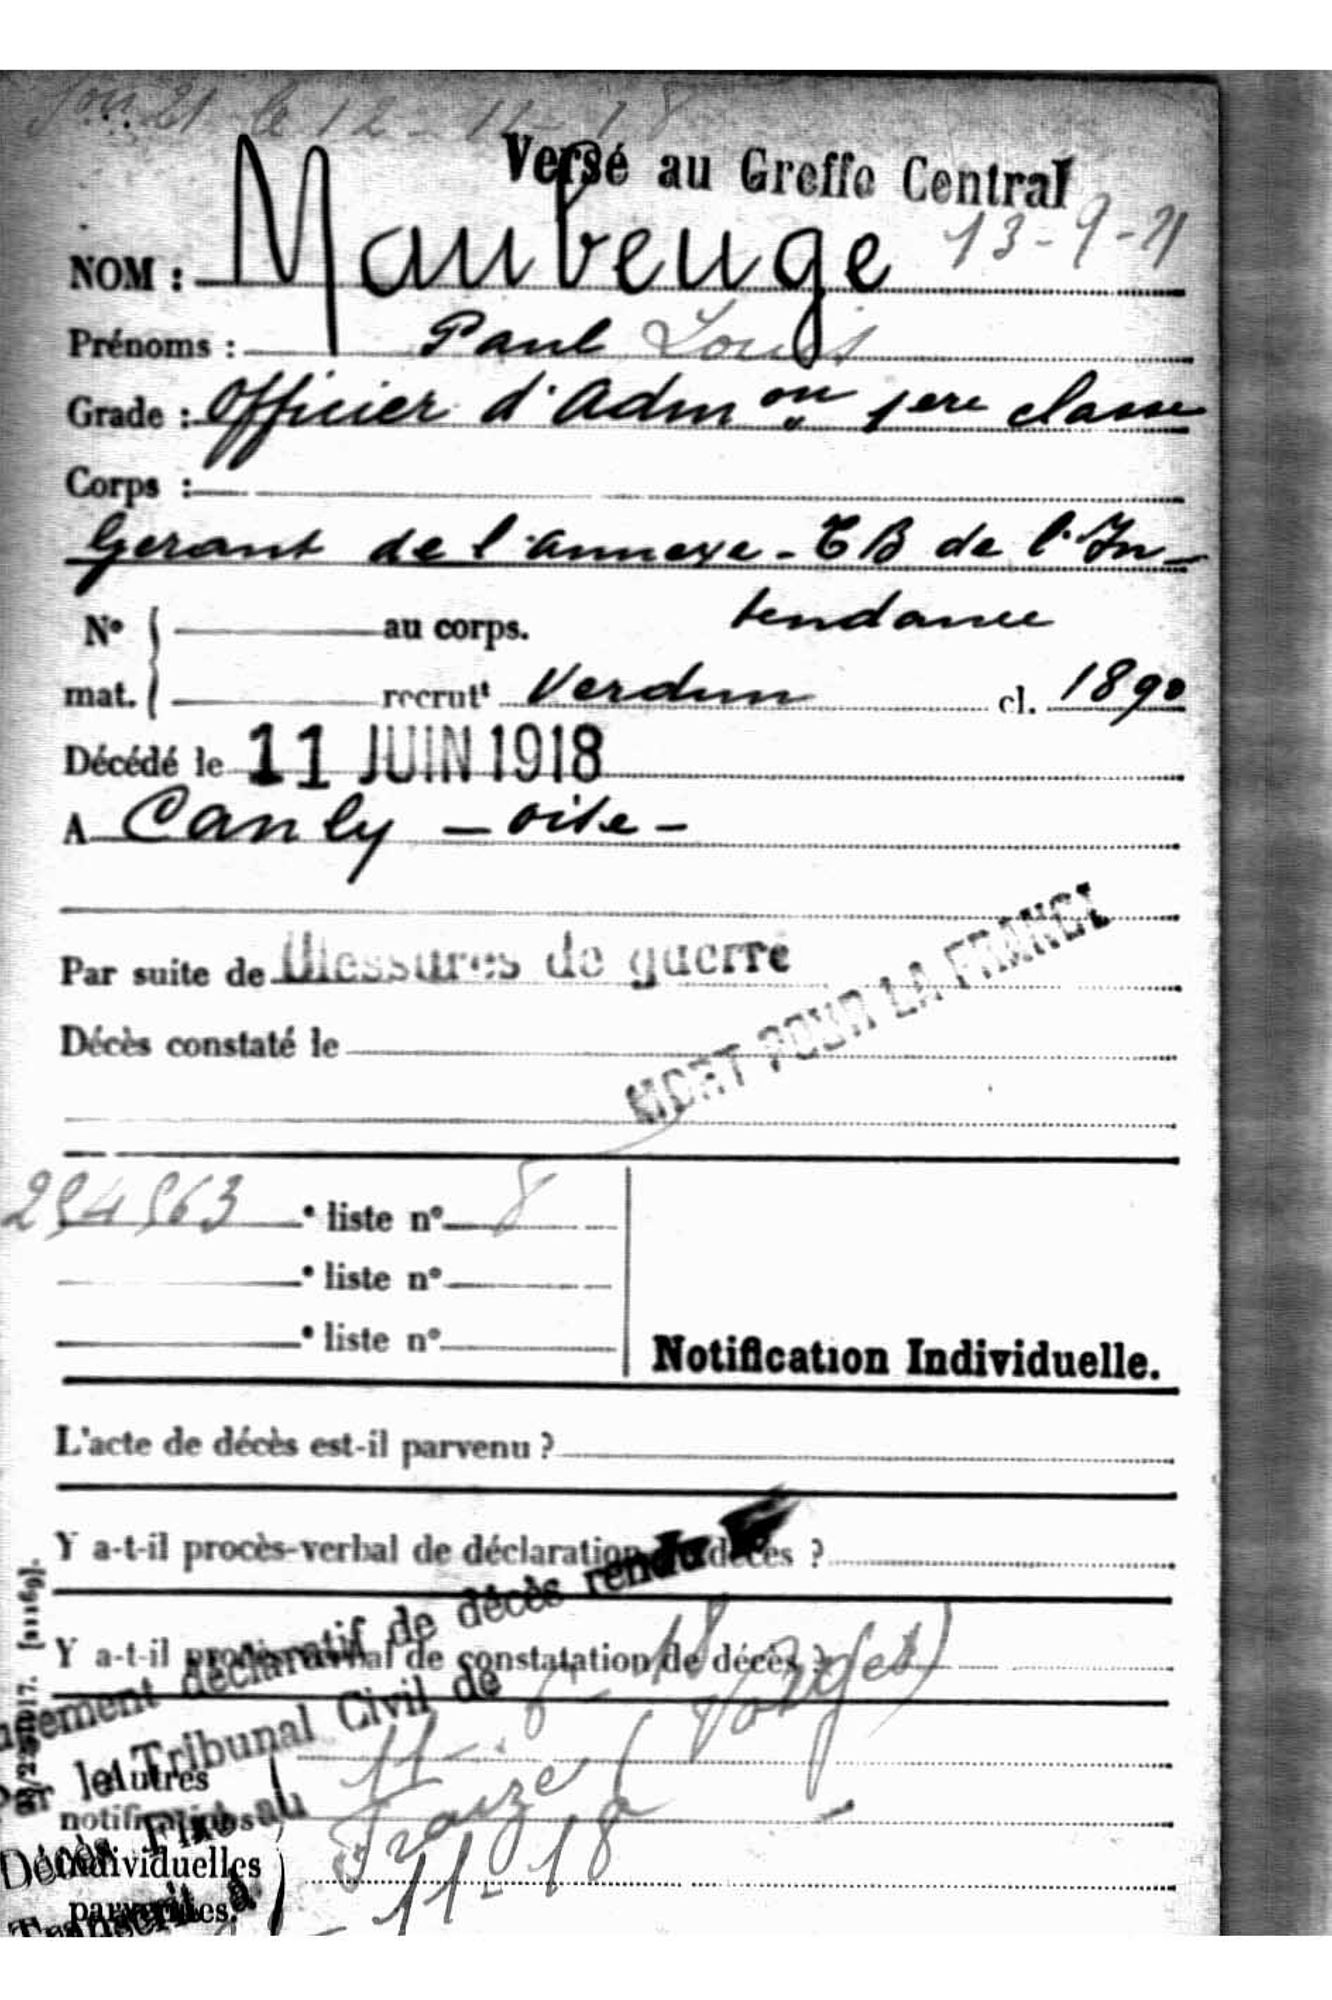 le 12-11-18
Versé au Greffe Central
13-9-21
NOM : Maubeuge
Prénoms : Paul Louis
Grade : Officier d'Adm on 1ere classe
Corps :
Gerant de l'annexe - TB de l'In-
tendance
N° au corps.
mat. recrutt Verdun cl. 1890
Décédé le 11 JUIN 1918
A Canly - oise -
Par suite de blessures de guerre
MORT POUR LA FRANCE
Décès constaté le
294963 e liste n° 8
e liste n°
e liste n°
Notification Individuelle.
L'acte de décès est-il parvenu ?
Y a-t-il procès-verbal de déclaration de décès ?
Y a-t-il procès-verbal de constatation de décès ?
Jugement déclaratif de décès rendu le
Par le Tribunal Civil de
Décès Fixé au
Transcrit à
11-6-18
Fraize (Vosges)
-11-18
Autres
notifications
individuelles
parvenues.
[31169].